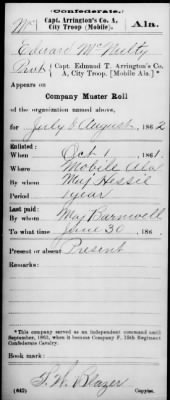 (Confederate.)
Mc Capt. Arrington's Co. A, City Troop (Mobile), Ala.
Edward McNulty
Pvt, Capt. Edmund T. Arrington's Co. A, City Troop, [Mobile Ala.]*
Appears on
Company Muster Roll
of the organization named above,
for July & August, 1862
Enlisted:
When Oct 1, 1861.
Where Mobile Ala
By whom Maj Hessie
Period 1 year
Last paid:
By whom Maj Barnwell
To what time June 30, 186 .
Present or absent Present
Remarks:
*This company served as an independent command until
September, 1862, when it became Company F, 15th Regiment
Confederate Cavalry.
Book mark:
(642)
Copyist.